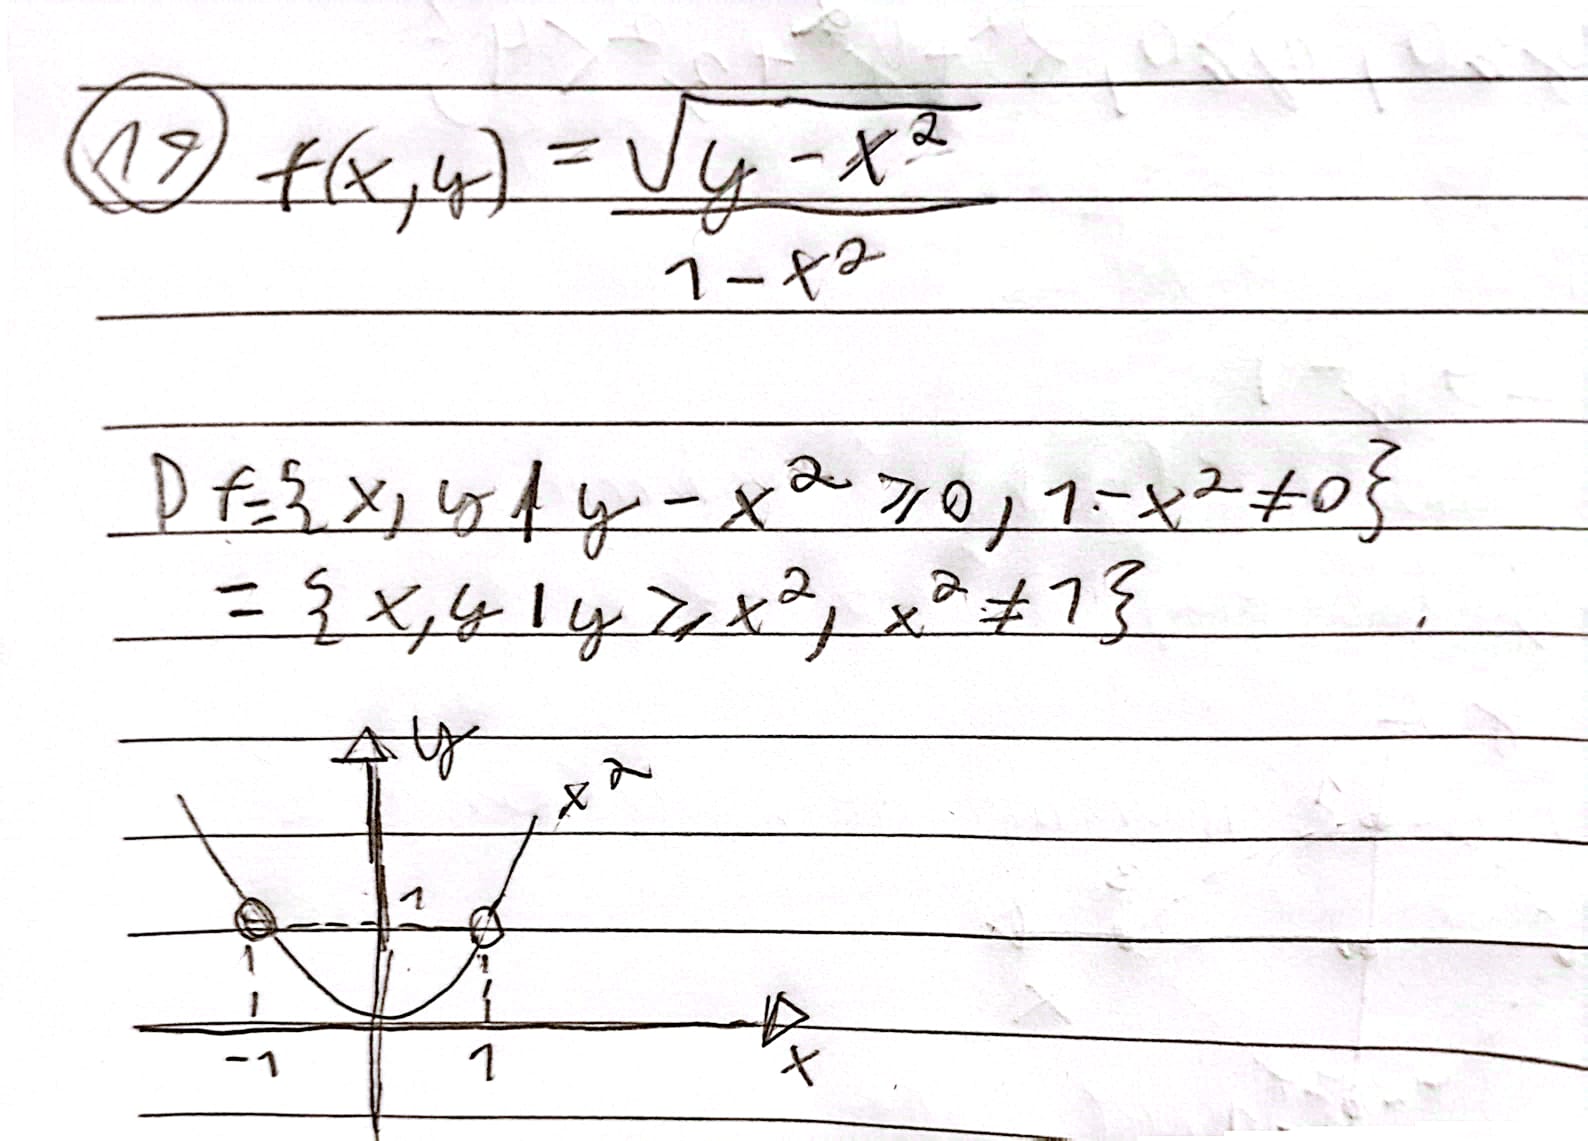 19 f(x,y) = √(y - x²)
1 - x²
Df={x, y | y - x² ⩾ 0, 1 - x² ≠ 0}
= {x, y | y ⩾ x², x² ≠ 1}
y
x²
1
-1 1 x